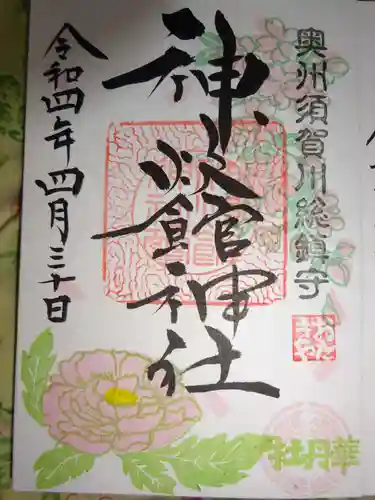 奥州須賀川総鎮守
神炊館神社
令和四年四月三十日
おた
きや
牡丹華